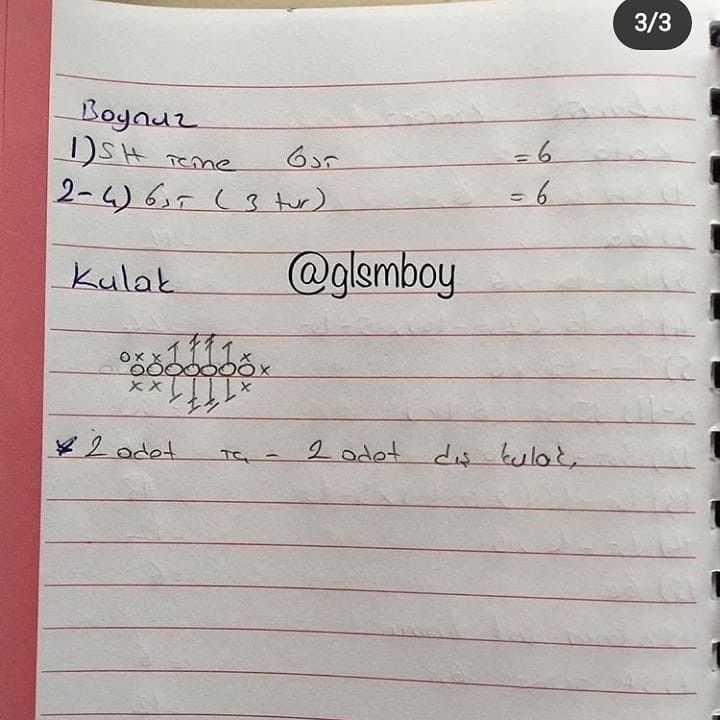 3/3
Boynuz
1) SH içine 6sı =6
2-4) 6sı (3 tur) =6
Kulak
@glsmboy
* 2 adet iç - 2 adet dış kulak,